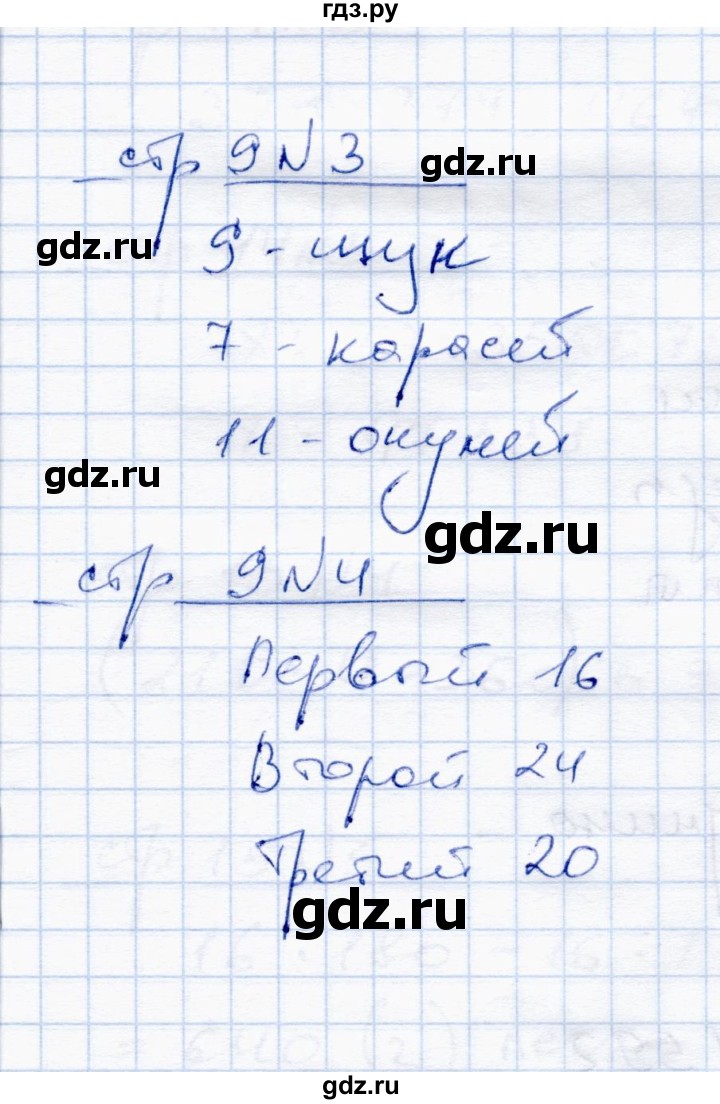 гдз.ру
стр 9 N 3
gdz.ru
gdz.ru
9 - щук
7 - карасей
11 - окуней
gdz.ru
gdz.ru
стр 9 N 4
Первый 16
Второй 24
Третий 20
gdz.ru
gdz.ru